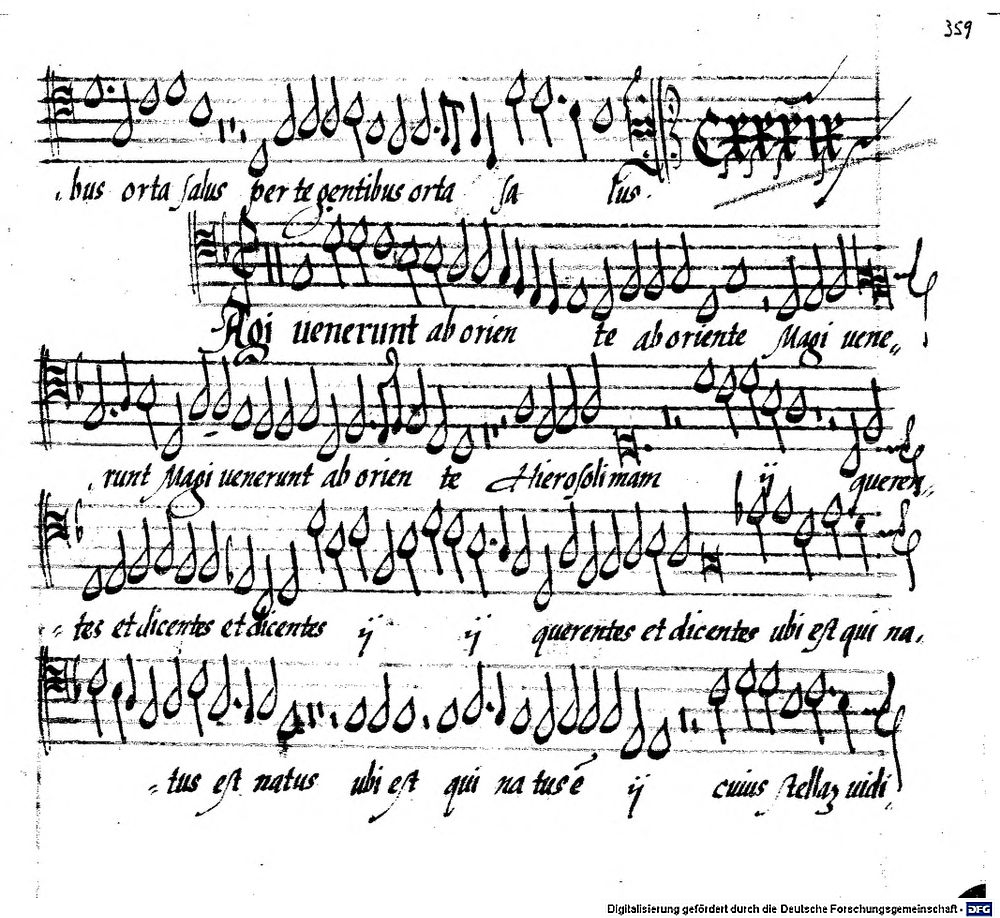 359
CXXXIX
‸bus orta salus per te gentibus orta sa lus.
Agi uenerunt ab orien te ab oriente Magi uene„
‸runt Magi uenerunt ab orien te Hierosolimam ij queren„
„tes et dicentes et dicentes ij ij querentes et dicentes ubi est qui na‸
„tus est natus ubi est qui natus ē ij cuius stellaꝫ uidi
Digitalisierung gefördert durch die Deutsche Forschungsgemeinschaft - DFG